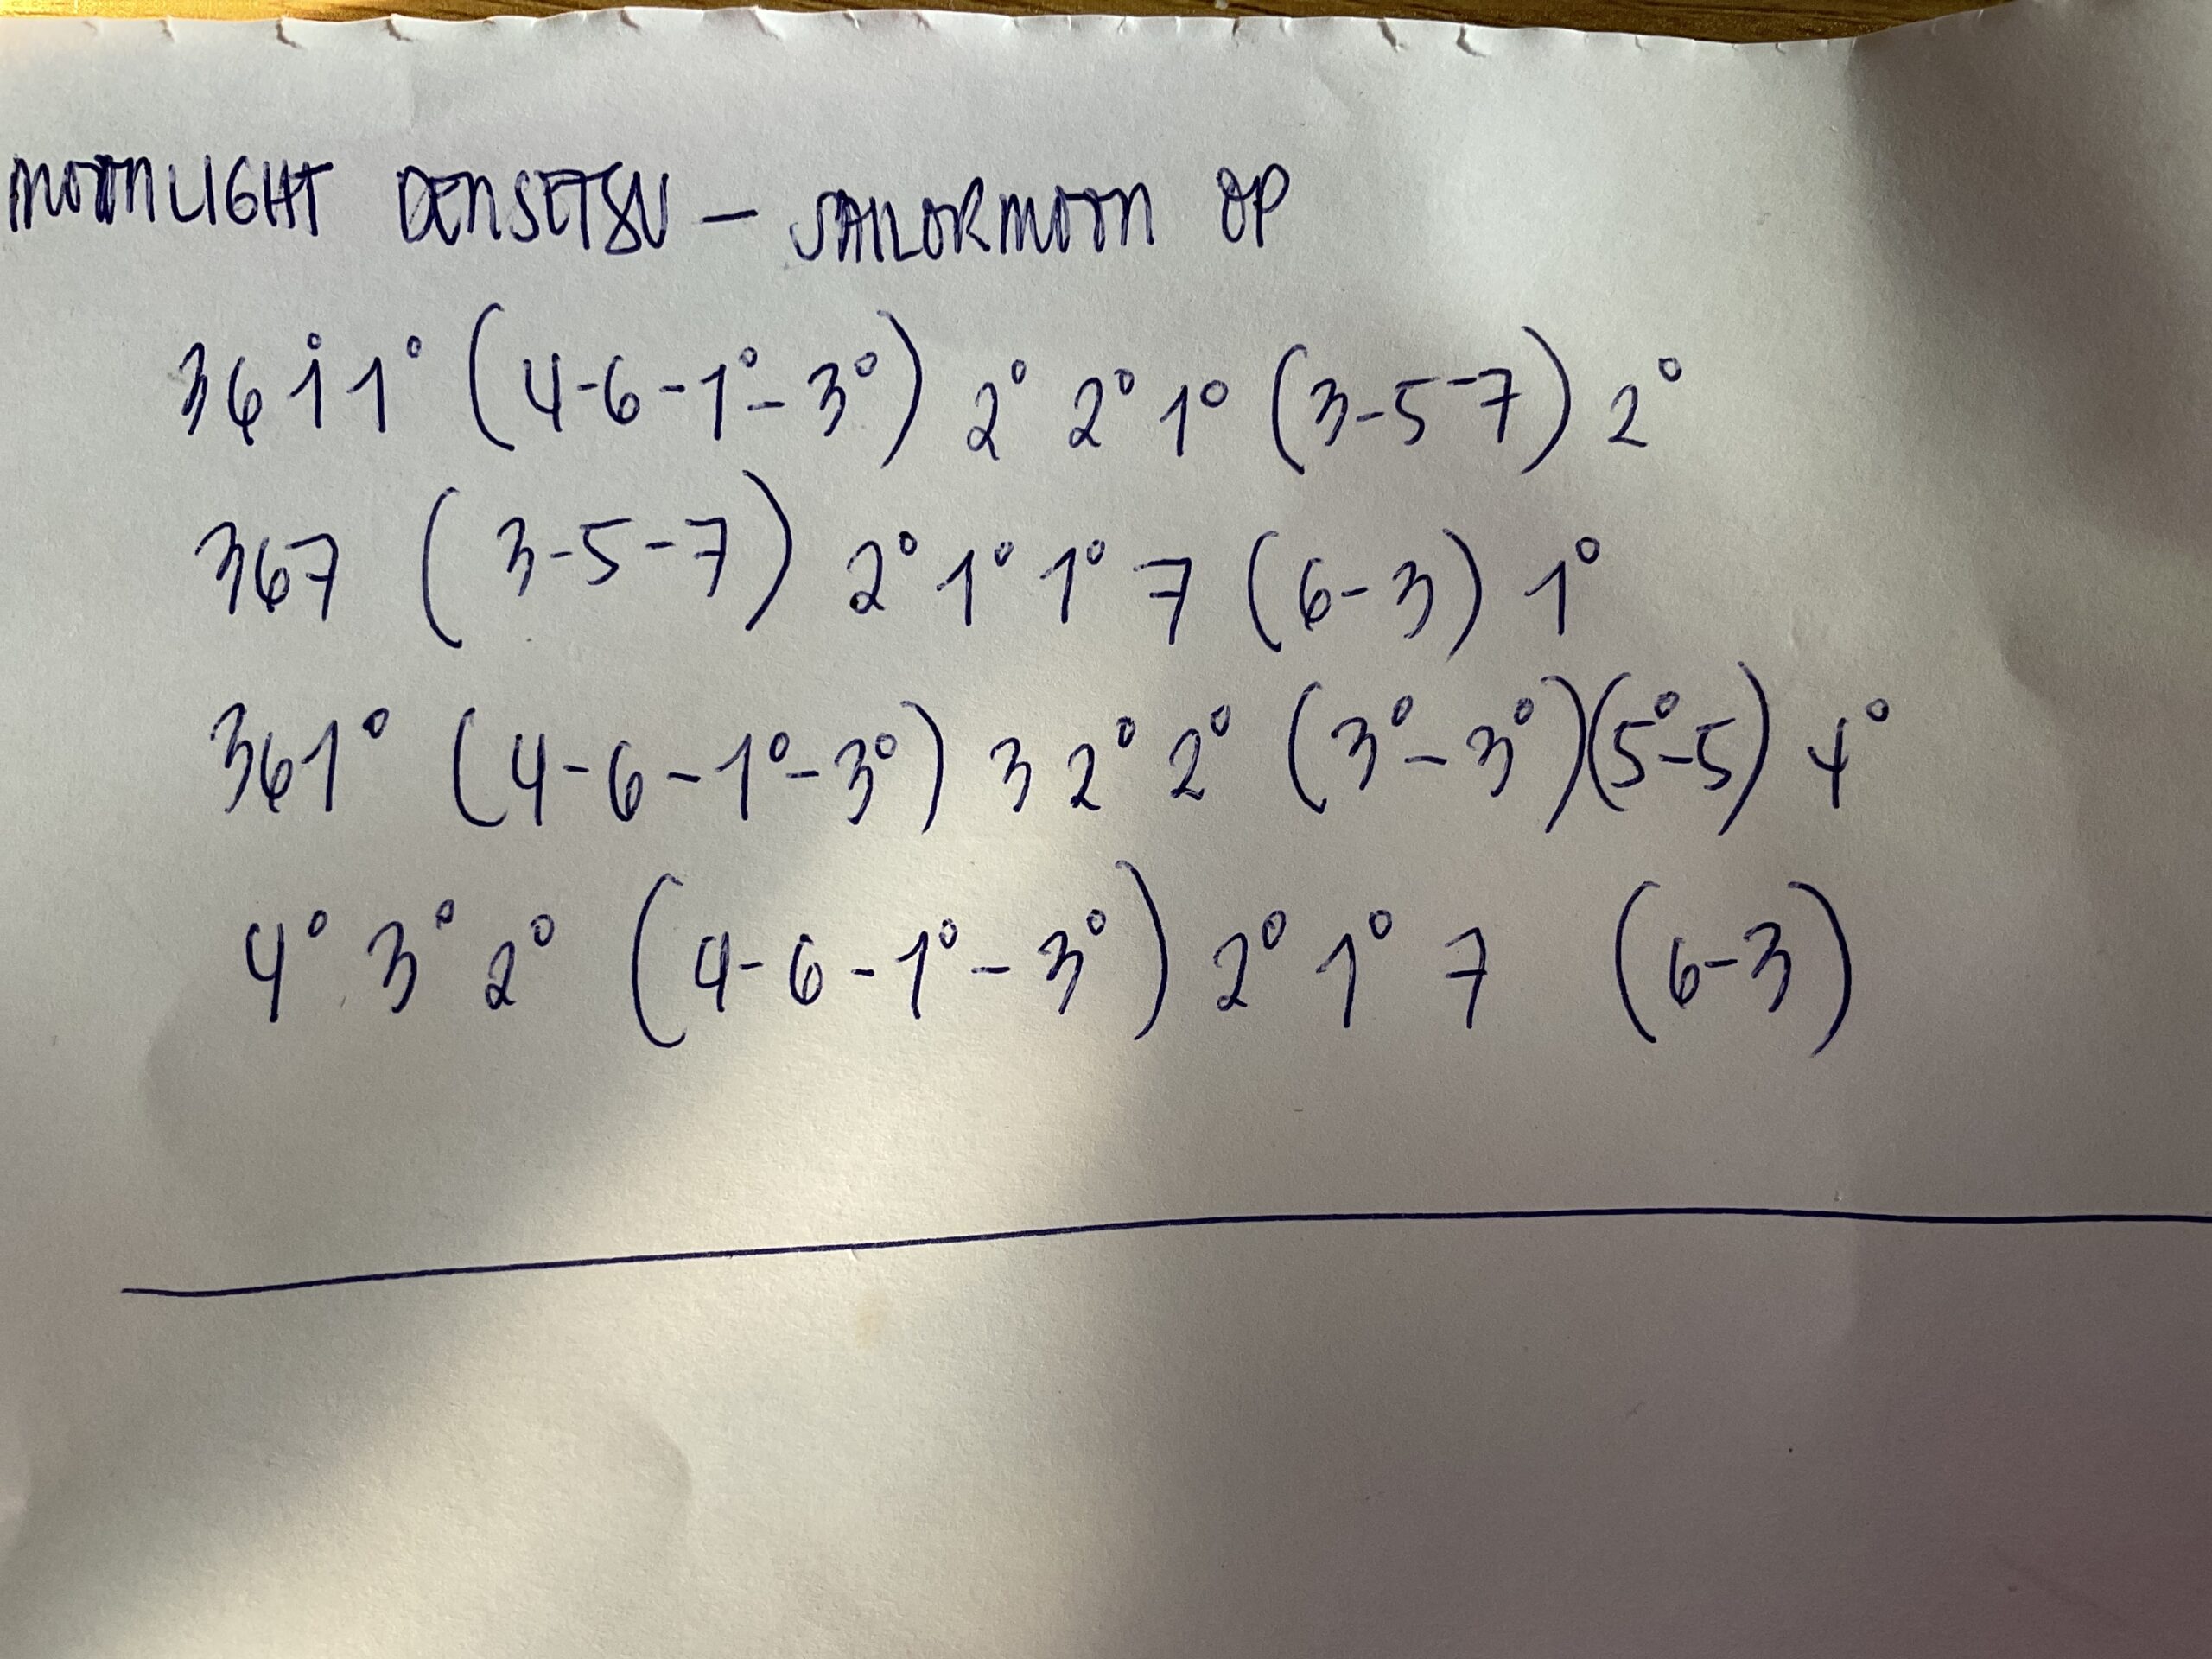 MOONLIGHT DENSETSU – SAILORMOON OP
3 6 1° 1° (4-6-1°-3°) 2° 2° 1° (3-5-7) 2°
3 6 7 (3-5-7) 2° 1° 1° 7 (6-3) 1°
3 6 1° (4-6-1°-3°) 3 2° 2° (3°-3°)(5°-5) 4°
4° 3° 2° (4-6-1°-3°) 2° 1° 7 (6-3)